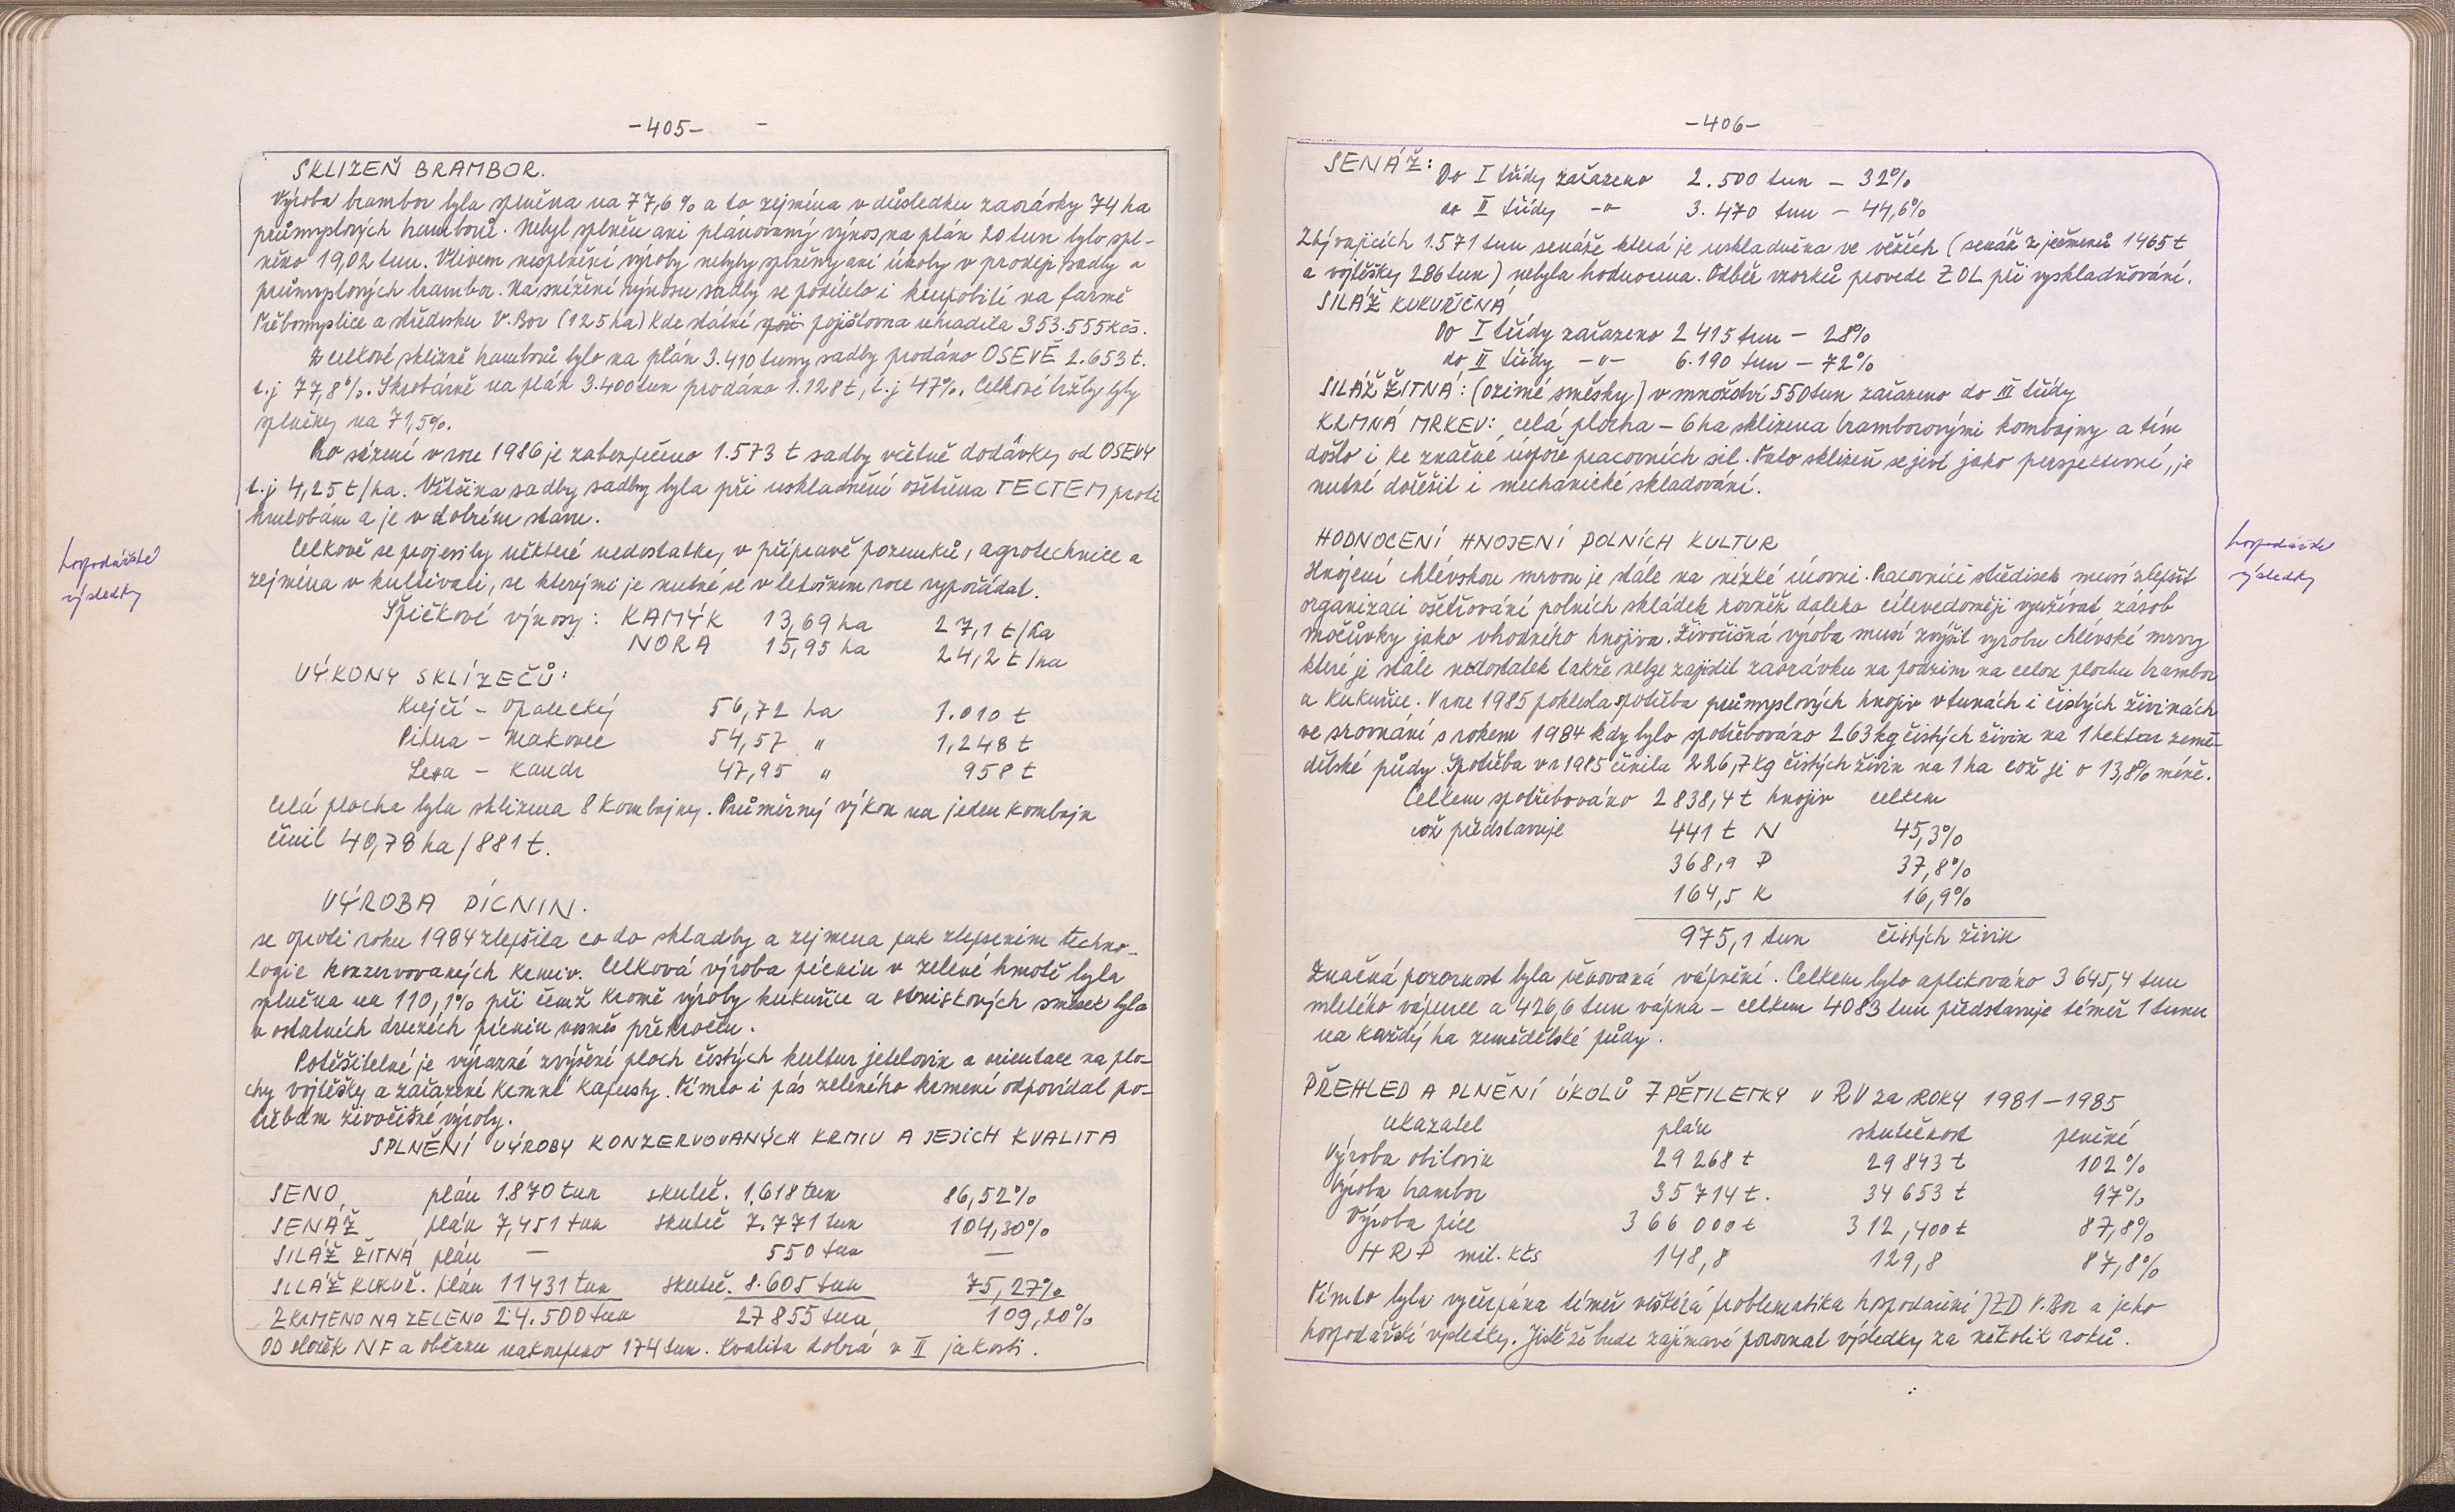 -405-
SKLIZEŇ BRAMBOR.
Výroba brambor byla splněna na 77,6% a to zejména v důsledku zaorávky 74 ha
průmyslových brambor. Nebyl splněn ani plánovaný výnos na plán 20 tun bylo spl-
něno 19,02 tun. Vlivem nesplnění výroby nebyly splněny ani úkoly v prodeji sadby a
průmyslových brambor. Na snížení výnosu sadby se podílelo i krupobití na farmě
Třebomyslice a středisku V. Bor (125 ha) kde státní pojišťovna uhradila 353.555 Kčs.
Z celkové sklizně brambor bylo na plán 3.410 tuny sadby prodáno OSEVĚ 2.653 t.
t.j 77,8%. Škrobárně na plán 3.400 tun prodáno 1.128 t, t.j 47%. Celkové tržby byly
splněny na 71,5%.
Pro sázení v roce 1986 je zabezpečeno 1.573 t sadby včetně dodávky od OSEVY
t.j 4,25 t/ha. Většina sadby sadby byla při uskladnění ošetřena TECTEM proti
hnilobám a je v dobrém stavu.
Celkově se projevily některé nedostatky v přípravě pozemků, agrotechnice a
zejména v kultivaci, se kterými je nutné se v letošním roce vypořádat.
hospodářské
výsledky
Špičkové výnosy: KAMÝK 13,69 ha 27,1 t/ha
NORA 15,95 ha 24,2 t/ha
VÝKONY SKLÍZEČŮ:
Krejčí - Opalecký 56,72 ha 1.010 t
Pihera - Makovec 54,57 " 1,248 t
Lexa - Kandr 47,95 " 958 t
Celá plocha byla sklizena 8 kombajny. Průměrný výkon na jeden kombajn
činil 40,78 ha/881 t.
VÝROBA PÍCNIN.
se oproti roku 1984 zlepšila co do skladby a zejmena pak zlepšením techno-
logie konzervovaných krmiv. Celková výroba pícnin v zelené hmotě byla
splněna na 110,1% při čemž kromě výroby kukuřice a strniskových směsek byla
v ostatních druzích pícnin vesměs překročen.
Potěšitelné je výrazné zvýšení ploch čistých kultur jetelovin a orientace na plo-
chy vojtěšky a zařazení krmné kapusty. Tímto i pás zeleného krmení odpovídal po-
třebám živočišné výroby.
SPLNĚNÍ VÝROBY KONZERVOVANÝCH KRMIV A JEJICH KVALITA
SENO plán 1.870 tun skuteč. 1.618 tun 86,52%
SENÁŽ plán 7,451 tun skuteč 7.771 tun 104,30%
SILÁŽ ŽITNÁ plán — 550 tun —
SILÁŽ KUKUŘ. plán 11431 tun skuteč. 8.605 tun 75,27%
ZKRMENO NA ZELENO 24.500 tun 27855 tun 109,20%
OD složek NF a občanu nakoupeno 174 tun. Kvalita dobrá v II jakosti.
-406-
SENÁŽ: Do I třídy zařazeno 2.500 tun - 32%
do II třídy -"- 3.470 tun - 44,6%
Zbývajících 1.571 tun senáže která je uskladněna ve věžích (senáž z ječmenů 1465 t
a vojtěšky 286 tun) nebyla hodnocena. Odběr vzorků provede ZOL při vyskladňování.
SILÁŽ KUKUŘIČNÁ
Do I třídy zařazeno 2 415 tun - 28%
do II třídy -"- 6.190 tun - 72%
SILÁŽ ŽITNÁ: (ozimé směsky) v množství 550 tun zařazeno do III třídy
KRMNÁ MRKEV: celá plocha - 6 ha sklizena bramborovými kombajny a tím
došlo i ke značné úspoře pracovních sil. Tato sklizeň se jeví jako perspektivní, je
nutné dořešit i mechanické skladování.
HODNOCENÍ HNOJENÍ POLNÍCH KULTUR
Hnojení chlévskou mrvou je stále na nízké úrovni. Pracovníci středisek musí zlepšit
organizaci ošetřování polních skládek rovněž daleko cílevědoměji využívat zásob
močůvky jako vhodného hnojiva. Živočišná výroba musí zvýšit vyrobu chlévské mrvy
které je stále nedostatek takže nelze zajistit zaorávku na podzim na celou plochu brambor
a kukuřice. V roce 1985 poklesla spotřeba průmyslových hnojiv v tunách i čistých živinách
ve srovnání s rokem 1984 kdy bylo spotřebováno 263 kg čistých živin na 1 hektar země-
dělské půdy. Spotřeba v r 1985 činila 226,7 kg čistých živin na 1 ha což je o 13,8% méně.
hospodářské
výsledky
Celkem spotřebováno 2 838,4 t hnojiv celkem
což představuje 441 t N 45,3%
368,9 P 37,8%
164,5 K 16,9%
975,1 tun čistých živin
Značná pozornost byla věnovaná vápnění. Celkem bylo aplikováno 3 645,4 tun
mletého vápence a 426,6 tun vápna - celkem 4083 tun představuje téměř 1 tunu
na každý ha zemědělské půdy.
PŘEHLED A PLNĚNÍ ÚKOLŮ 7 PĚTILETKY V RV za ROKY 1981-1985
ukazatel plán skutečnost plnění
Výroba obilovin 29 268 t 29 843 t 102%
Výroba brambor 35 714 t. 34 653 t 97%
Výroba píce 366 000 t 312,400 t 87,8%
HRP mil. Kčs 148,8 129,8 87,8%
Tímto byla vyčerpána téměř veškerá problematika hospodaření JZD V. Bor a jeho
hospodářské výsledky. Jistě že bude zajímavé porovnat výsledky za několik roků.